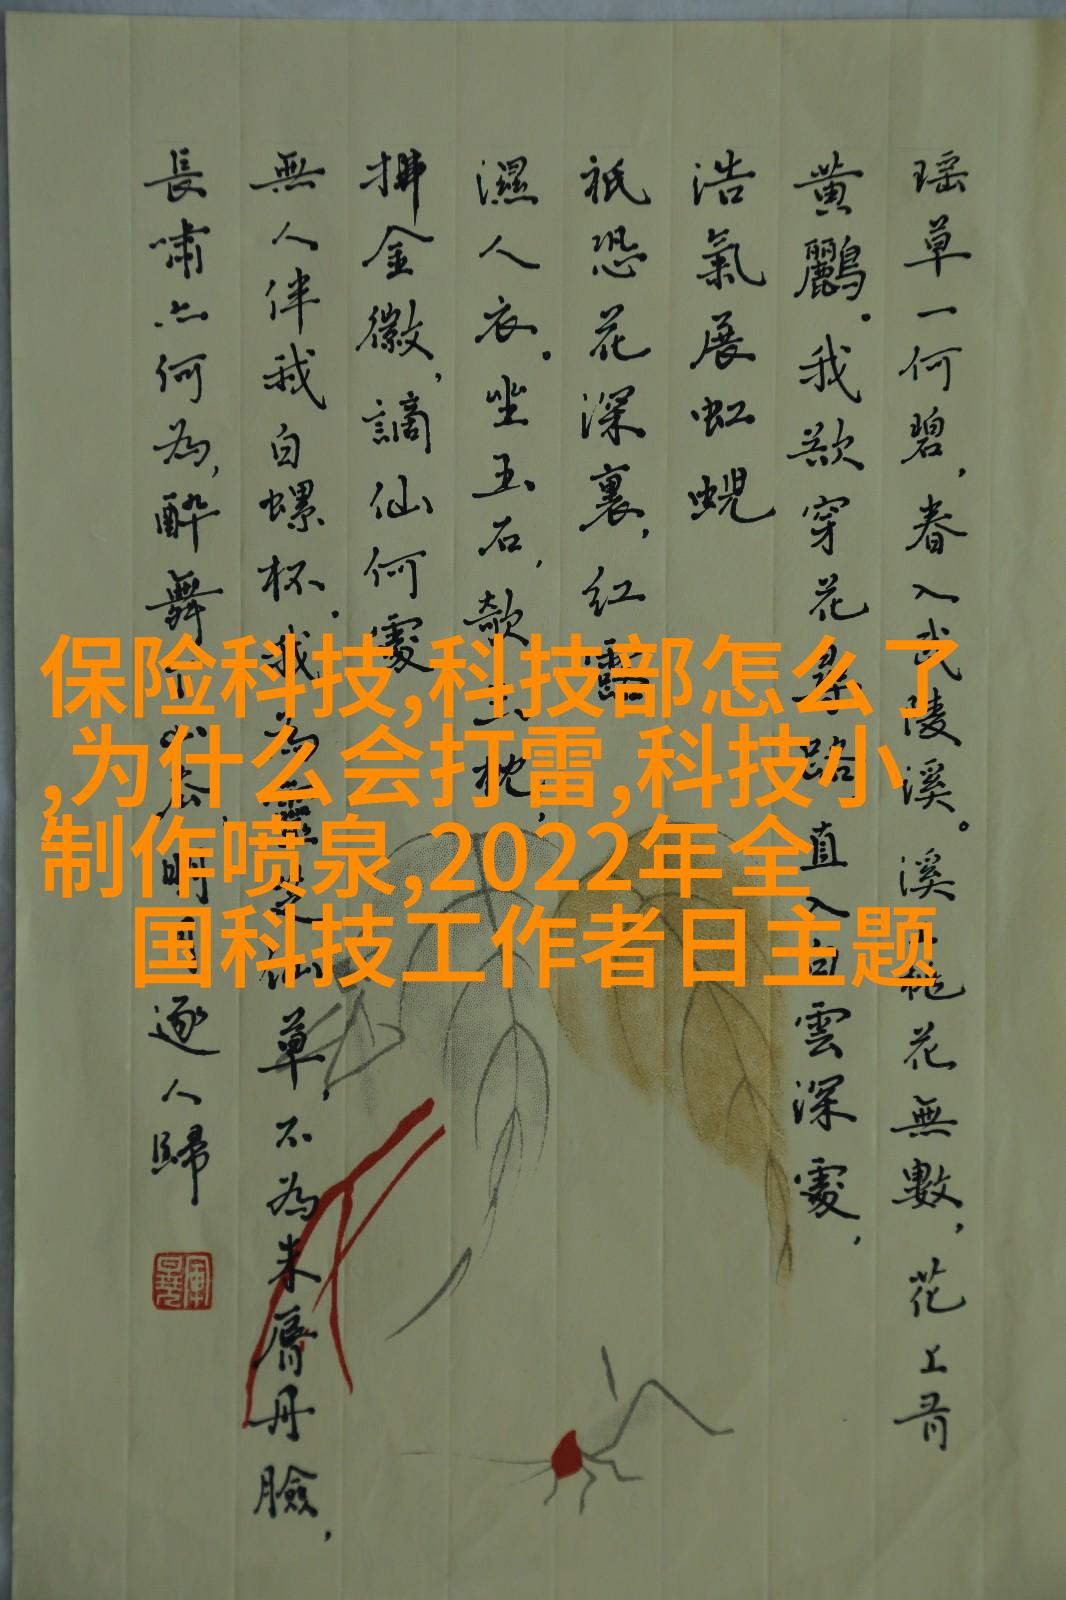 瑶草一何碧，春入武陵溪。溪上桃花無數，花上有
黄鸝。我欲穿花尋路直入白雲深處，
浩氣展虹蜺
祇恐花深裏，红露
濕人衣。坐玉石，欹玉枕，
拂金徽，謫仙何處
無人伴我白螺杯。我為靈芝仙草，不為朱脣丹臉，
長嘯亦何為，醉舞下山去，明月逐人歸
保险科技,科技部怎么了
,为什么会打雷,科技小
制作喷泉,2022年全
国科技工作者日主题